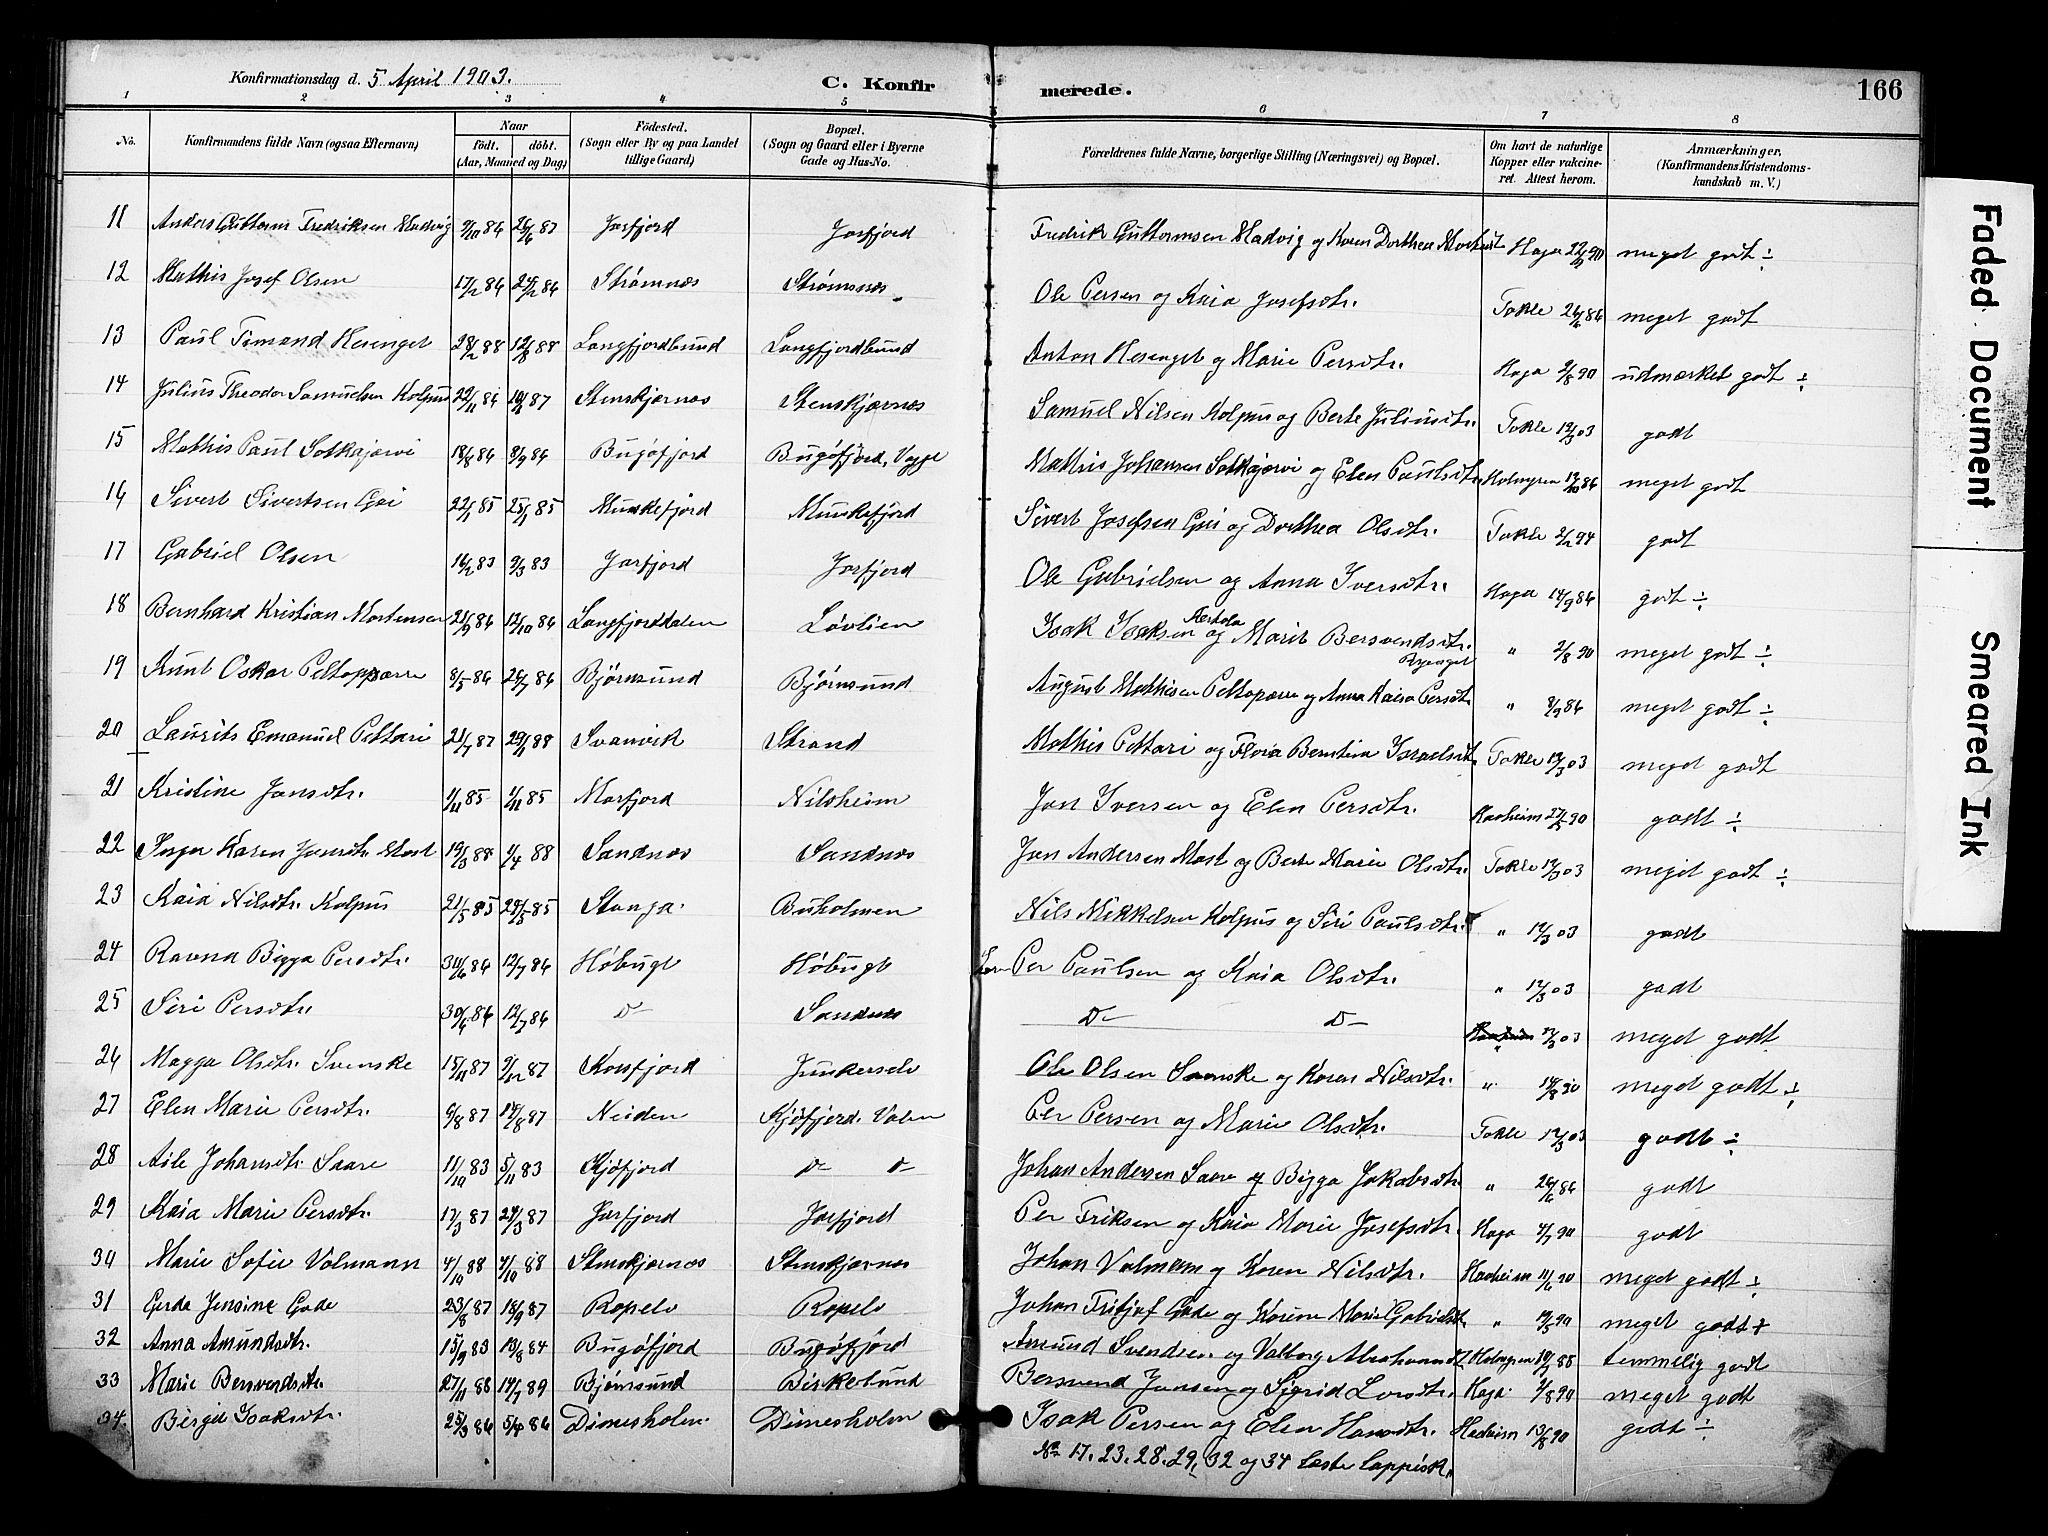 Konfirmationsdag d. 5 April 1903.
C. Konfirmerede.
166
1 2 3 4 5 6 7 8
No. Konfirmandens fulde Navn (ogsaa Efternavn) Naar født. døbt. (Aar, Maaned og Dag) Fødested. (Sogn eller By og paa Landet tillige Gaard) Bopæl. (Sogn og Gaard eller i Byerne Gade og Hus-No. Forældrenes fulde Navne, borgerlige Stilling (Næringsvei) og Bopæl. Om havt de naturlige Kopper eller vakcineret. Attest herom. Anmærkninger, (Konfirmandens Kristendomskundskab m. V.)
11 Anders Guttorm Fredriksen Madvig 9/10 86 26/6 87 Jarfjord Jarfjord Fredrik Guttormsen Madvig og Karen Dorthea Haga 90 meget godt ÷
12 Mathis Josef Olsen 17/12 86 Strømnæs Strømsnæs Ole Persen og Kaia Josefsdtr. Takle 26/6 86 meget godt
13 Paul Hesenget 28/2 88 12/8 88 Langfjordbund Langfjordbund Anton Hesenget og Marie Persdtr. Haga 2/8 90 udmærket godt ÷
14 Julius Theodor Samuelsen Kolpus 22/11 86 87 Stenskjærnæs Stenskjærnæs Samuel Nilsen Kolpus og Berte Juliusdtr. Takle 12/3 03 godt
15 Mathis Paul Sotkajærvi 18/8 86 8/9 86 Bugøfjord Bugøfjord, Mathis Johansen Sotkajærvi og Elen Paulsdtr. Holmgren 86 meget godt
16 Sivert Sivertsen 22/1 85 25/1 85 Munkefjord Munkefjord Sivert Josefsen og Dorthea Olsdtr. Takle 2/2 94 godt
17 Gabriel Olsen 16/2 83 9/3 83 Jarfjord Jarfjord Ole Gabrielsen og Anna Iversdtr. Haga 14/9 86 godt ÷
18 Bernhard Kristian Mortensen 21/9 86 12/10 86 Langfjorddalen Løvlien Isak Isaksen og Marit Bersvendsdtr. " 2/8 90 meget godt ÷
19 Knut Oskar 8/5 86 26/7 86 Bjørnsund Bjørnsund August Mathisen og Anna Kaisa Persdtr. " 8/9 86 meget godt ÷
20 Laurits Emanuel Pettari 21/7 87 29/1 88 Svanvik Strand Mathis Pettari og Flora Berntina Israelsdt. Takle 12/3 03 meget godt
21 Kristine Jansdtr. 1/11 85 1/11 85 Nilsheim Jon Iversen og Elen Persdtr. 90 godt ÷
22 Inger Karen Jansdtr. Mast 19/3 88 1/4 88 Sandnæs Sandnæs Jon Andersen Mast og Berte Marie Olsdtr. Takle 12/3 03 meget godt ÷
23 Kaia Nilsdtr. Kolpus 21/5 85 24/5 85 Stanga Buholmen Nils Mikkelsen Kolpus og Siri Paulsdtr. " 12/3 03 godt
24 Ravna Bigga Persdtr. 30/6 86 12/7 86 Høbugt Høbugt Per Paulsen og Kaia Olsdtr. " 12/3 03 godt
25 Siri Persdtr. 30/6 86 12/7 86 D— Sandnæs D— D— " 12/3 03 meget godt
26 Magga Olsdtr. Svenske 15/11 87 9/12 87 Korsfjord Junkerselv Ole Olsen Svenske og Karen Nilsdtr. " 90 meget godt ÷
27 Elen Marie Persdtr. 6/8 87 14/8 87 Neiden Kjøfjord. Valen Per Persen og Marie Olsdtr. Takle 12/3 03 godt ÷
28 Aile Johansdtr. Saare 11/10 83 5/11 83 Kjøfjord D— D— Johan Andersen Saare og Bigga Jakobsdtr. " 26/6 86 godt
29 Kaia Marie Persdtr. 17/3 87 24/3 87 Jarfjord Jarfjord Per Eriksen og Kaia Marie Josefsdtr. Haga 4/7 90 godt
30 Marie Sofie Valmann 4/10 88 4/10 88 Stenskjærnæs Stenskjærnæs Johan Valmann og Karen Nilsdtr. 11/6 90 meget godt ÷
31 Gerda Jensine Gade 23/8 87 18/9 87 Ropelv Ropelv Johan Gade og Karen Marie Gabrielsdt. " 90 meget godt ÷
32 Anna Amundsdtr. 15/9 83 13/8 84 Bugøfjord Bugøfjord Amund Svendsen og Valborg Abrahamsdt. Holmgren 88 temmelig godt
33 Marie Bersvendsdtr. 27/11 88 14/7 89 Bjørnsund Birkelund Bersvend Jansen og Sigrid Larsdtr. Haga 2/8 90 meget godt
34. Birgit Isaksdtr. 25/3 86 5/4 86 Dimesholm Dimesholm Isak Persen og Elen Hansdtr. 13/8 90 godt ÷
No 17. 23. 28. 29, 32 og 34 læste lappisk.
Faded Document
Smeared Ink